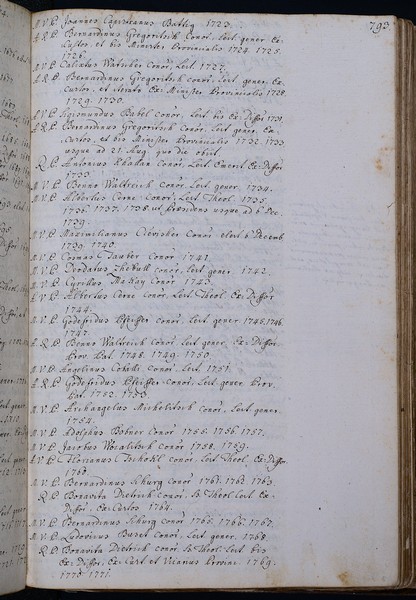 793.
A. V. P. Joannes Capistranus Battig 1723.
A. R. P. Bernardinus Gregoritsch Conor. Lect. gener. Ex-
Custos, et bis Minister Provincialis 1724. 1725.
1726.
A. V. P. Calixtus Watscher Conor. Lect. 1727.
A. R. P. Bernardinus Gregoritsch Conor. Lect. gener. Ex-
Custos, et Ex-Minister Provincialis 1728.
1729. 1730.
A. V. P. Sigismundus Babel Conor. Lect. bis Ex-Diffor 1731.
A. R. P. Bernardinus Gregoritsch Conor. Lect. gener. Ex-
Custos, et bis Minister Provincialis 1732. 1733
usque ad 21. Aug. quo die obiit.
R. P. Antonius Conor. Lect. Emerit. Ex-Diffor
1733.
A. V. P. Benno Waltreich Conor. Lect. gener. 1734.
A. V. P. Albertus Cerne Conor. Lect. Theol. 1735.
1736. 1737. 1738. ut Praesidens usque ad 6. Dec.
1739.
A. V. P. Maximilianus Conor. elect. 6. Decemb
1739. 1740.
A. V. P. Cosmas Tauber Conor. 1741.
A. V. P. Deodatus Conor. Lect. gener. 1742.
A. V. P. Cyrillus Conor. 1743.
A. V. P. Albertus Cerne Conor. Lect. Theol. Ex-Diffor
1744.
A. V. P. Godefridus Pfeiffer Conor. Lect. gener. 1745. 1746.
1747.
A. R. P. Benno Waltreich Conor. Lect. gener. Ex-Diffor.
Prov. 1748. 1749. 1750.
A. V. P. Angelinus Conor. Lect. 1751.
A. R. P. Godefridus Pfeiffer Conor. Lect. gener. Prov.
1752. 1753.
A. V. P. Archangelus Michelitsch Conor. Lect. gener.
1754.
A. V. P. Adolphus Conor. 1755. 1756. 1757.
A. V. P. Jacobus Conor. 1758. 1759.
A. V. P. Florianus Conor. Lect. Theol. Ex-Diffor.
1760.
A. V. P. Bernardinus Conor. 1761. 1762. 1763.
R. P. Bonavita Dietrich Conor. Ss. Theol. Lect. Ex-
Diffor. Ex-Custos 1764.
A. V. P. Bernardinus Conor. 1765. 1766. 1767.
A. V. P. Ludovicus Conor. Lect. gener. 1768.
R. P. Bonavita Dietrich Conor. Ss. Theol. Lect. bis
Ex-Diffor. Ex-Cust. et Vicarius Provinc. 1769.
1770. 1771.